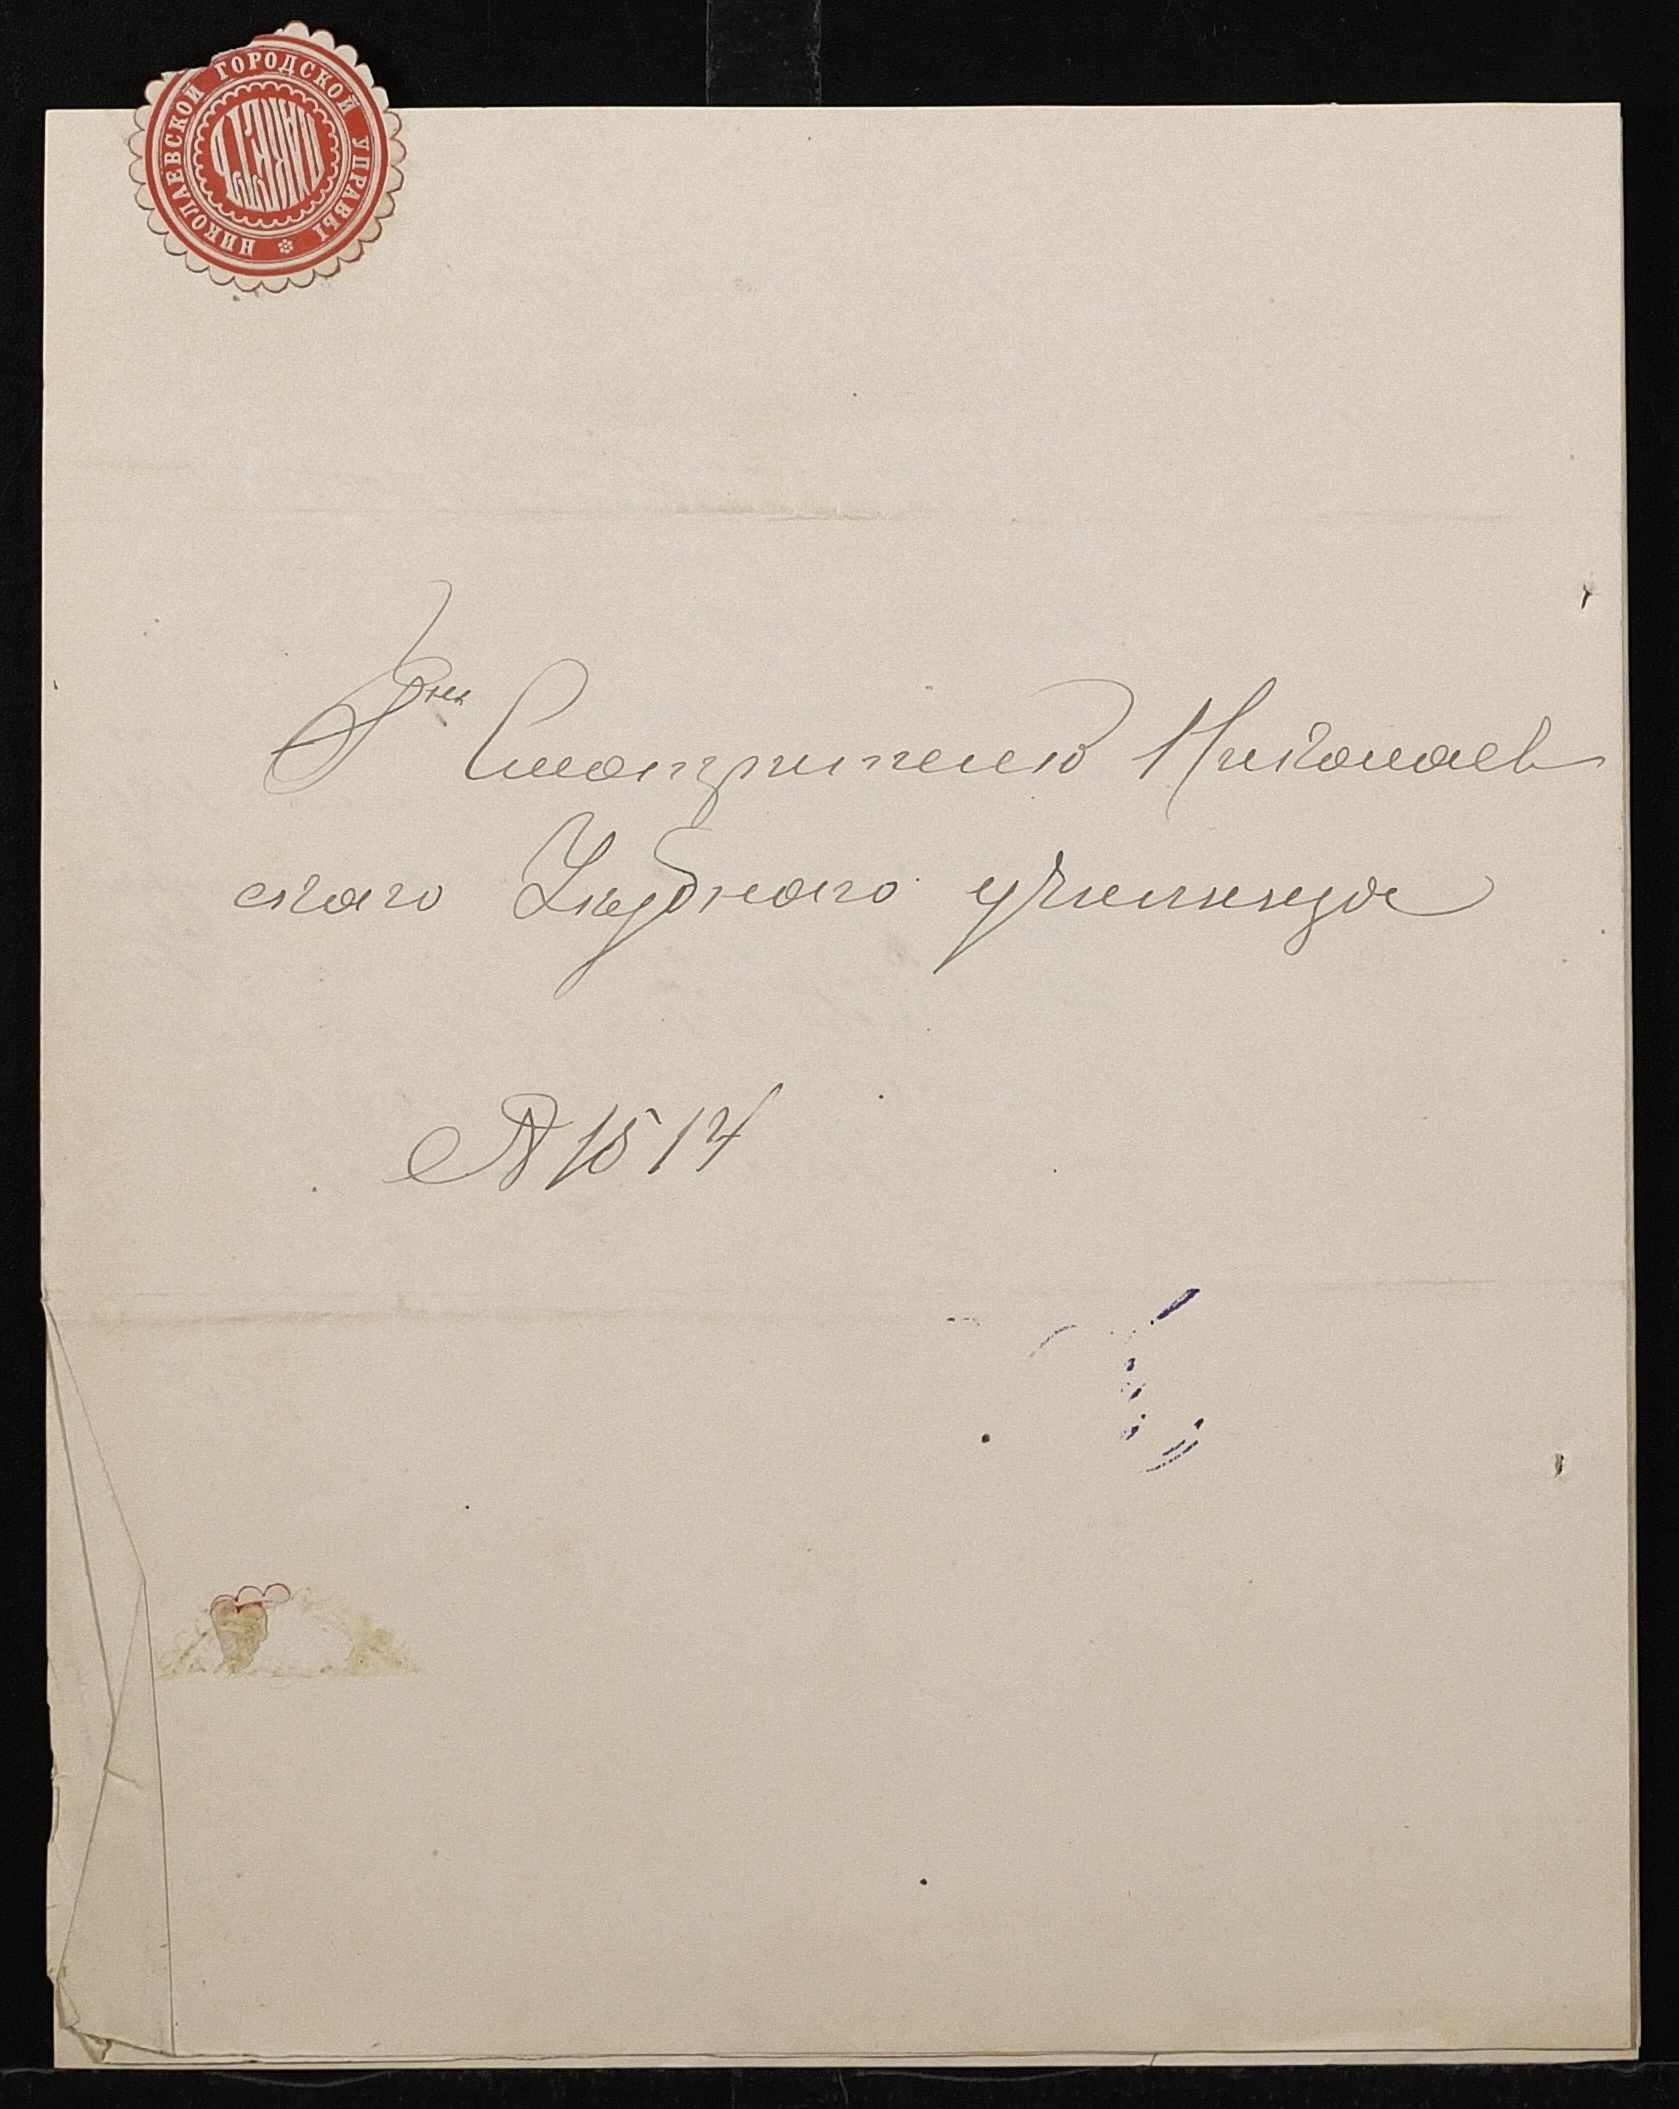 НИКОЛАЕВСКОЙ ГОРОДСКОЙ УПРАВЫ
ПАКЕТЪ
Г<sup>ну</sup> Смотрителю Николаев
скаго учебнаго училища
№ 1514